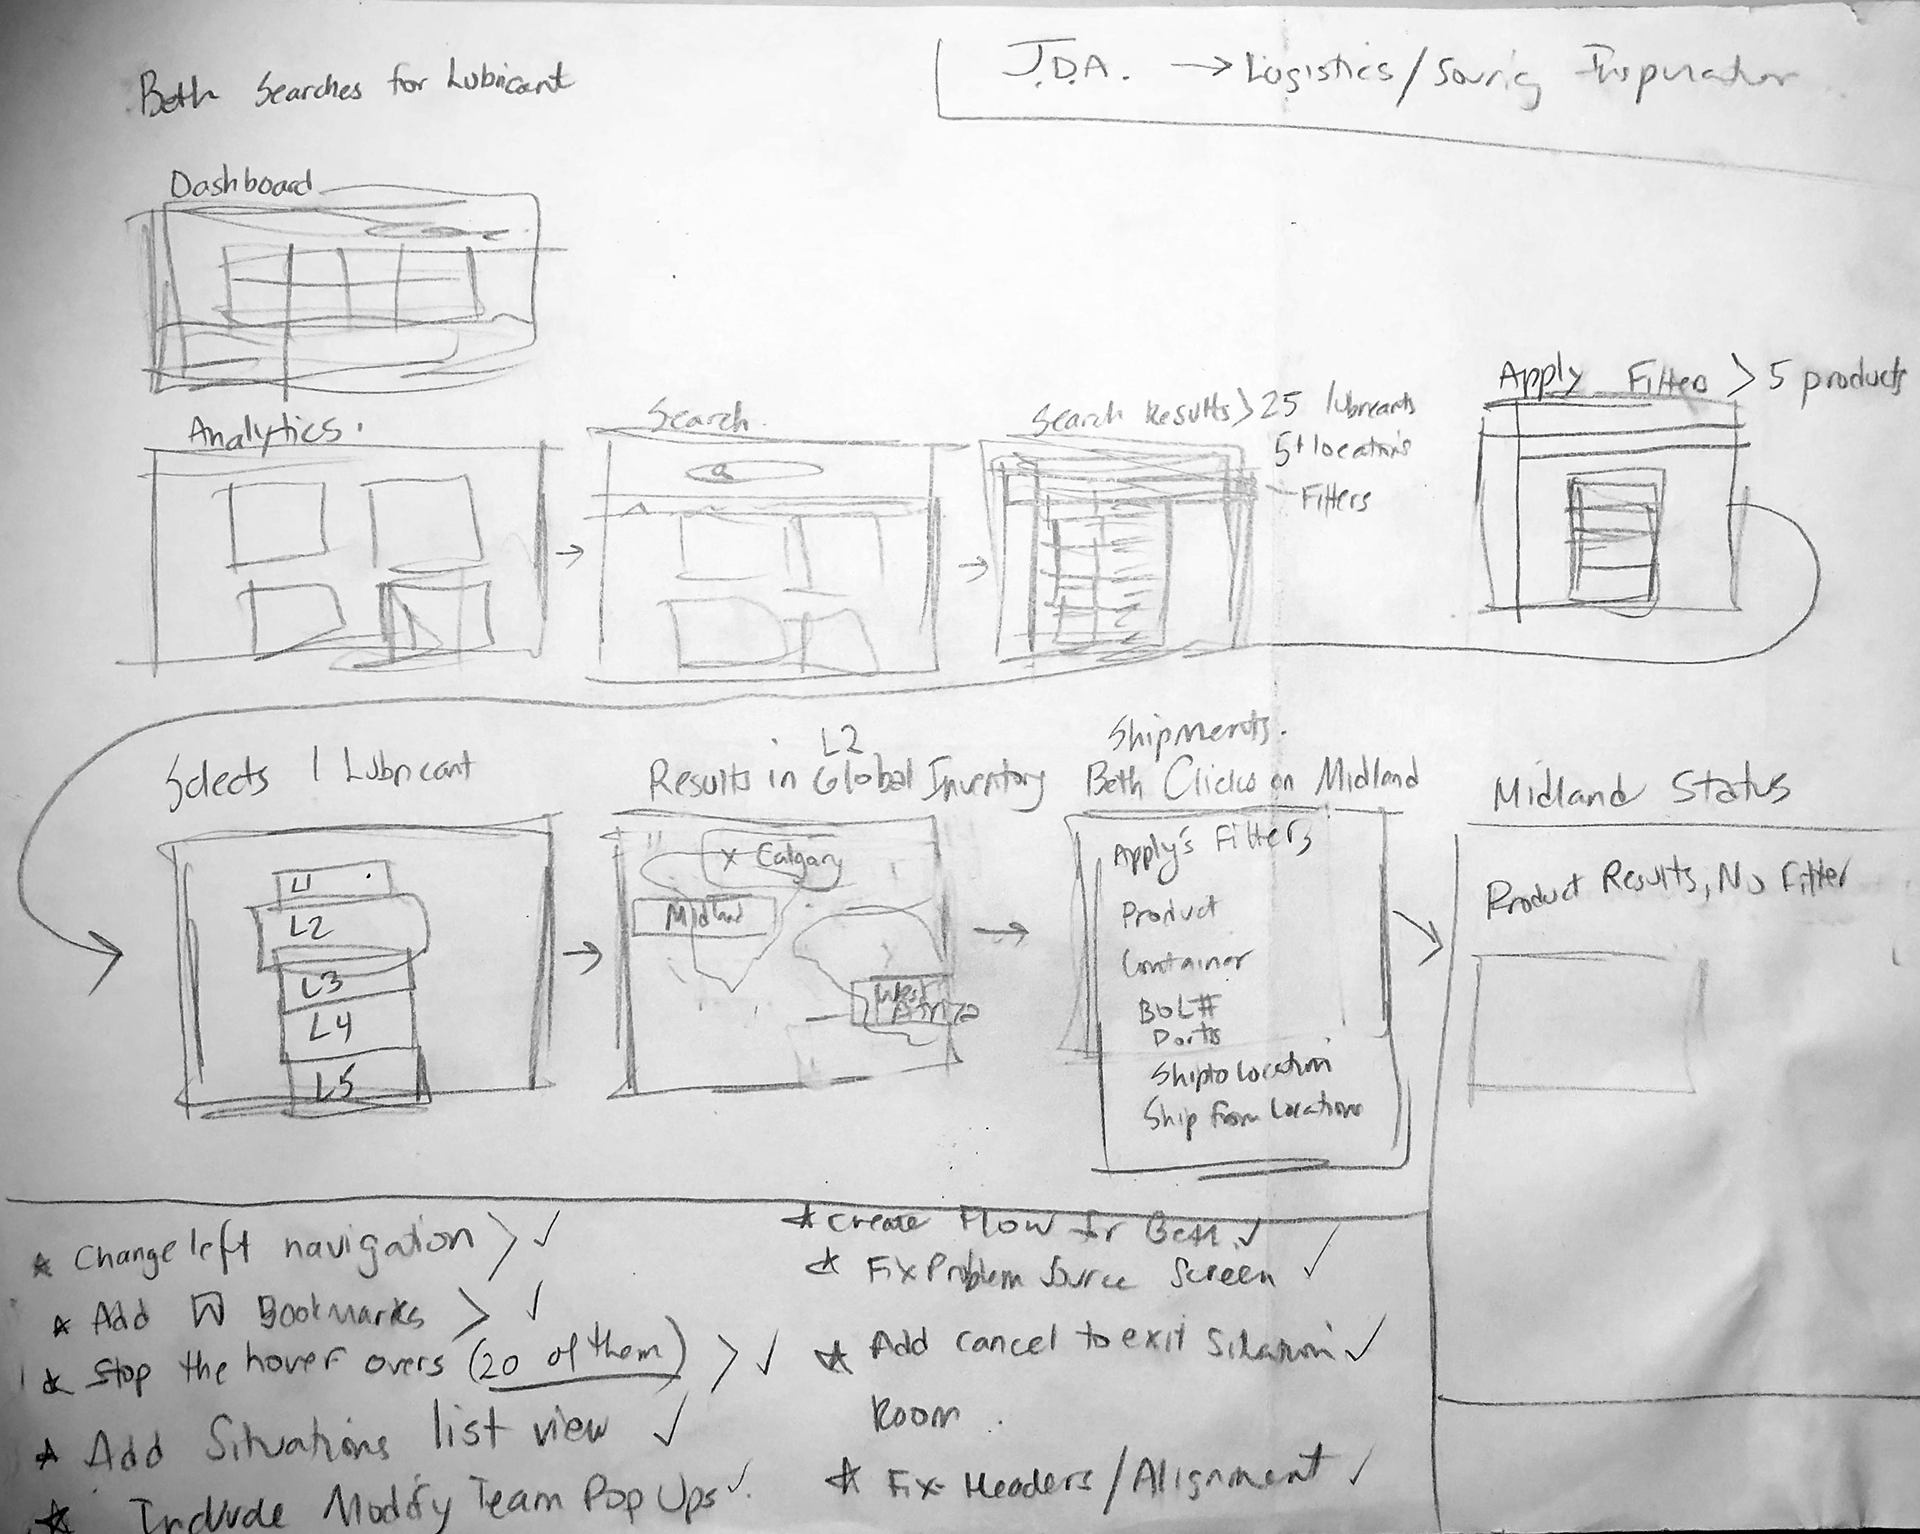 Beth Searches for Lubricant
J.D.A. → Logistics/Sourcig Inspiration
Dashboard
Analytics.
Search
Search Results > 25 lubricants
5+ locations
- Filters
Apply Filters > 5 products
Selects 1 Lubricant
L1
L2
L3
L4
L5
L2
Results in Global Inventory
x Calgary
Midland
West
Africa
Shipments.
Beth Clicks on Midland
Apply's Filters
Product
Container
BOL#
Ports
Shipto Location
Ship from Locations
Midland Status
Product Results, No Filter
* Change left navigation > ✓
* Add Bookmarks > ✓
* Stop the hover overs (20 of them) > ✓
* Add Situations list view ✓
* Include Modify Team Pop Ups ✓
* Create Flow for Beth ✓
* Fix Problem Source Screen ✓
* Add cancel to exit Situation ✓
Room.
* Fix Headers/Alignment ✓